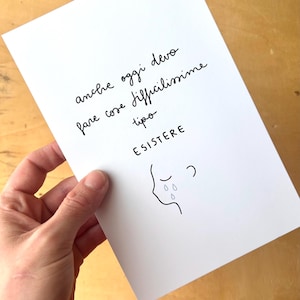 anche oggi devo
fare cose difficilissime
tipo
ESISTERE